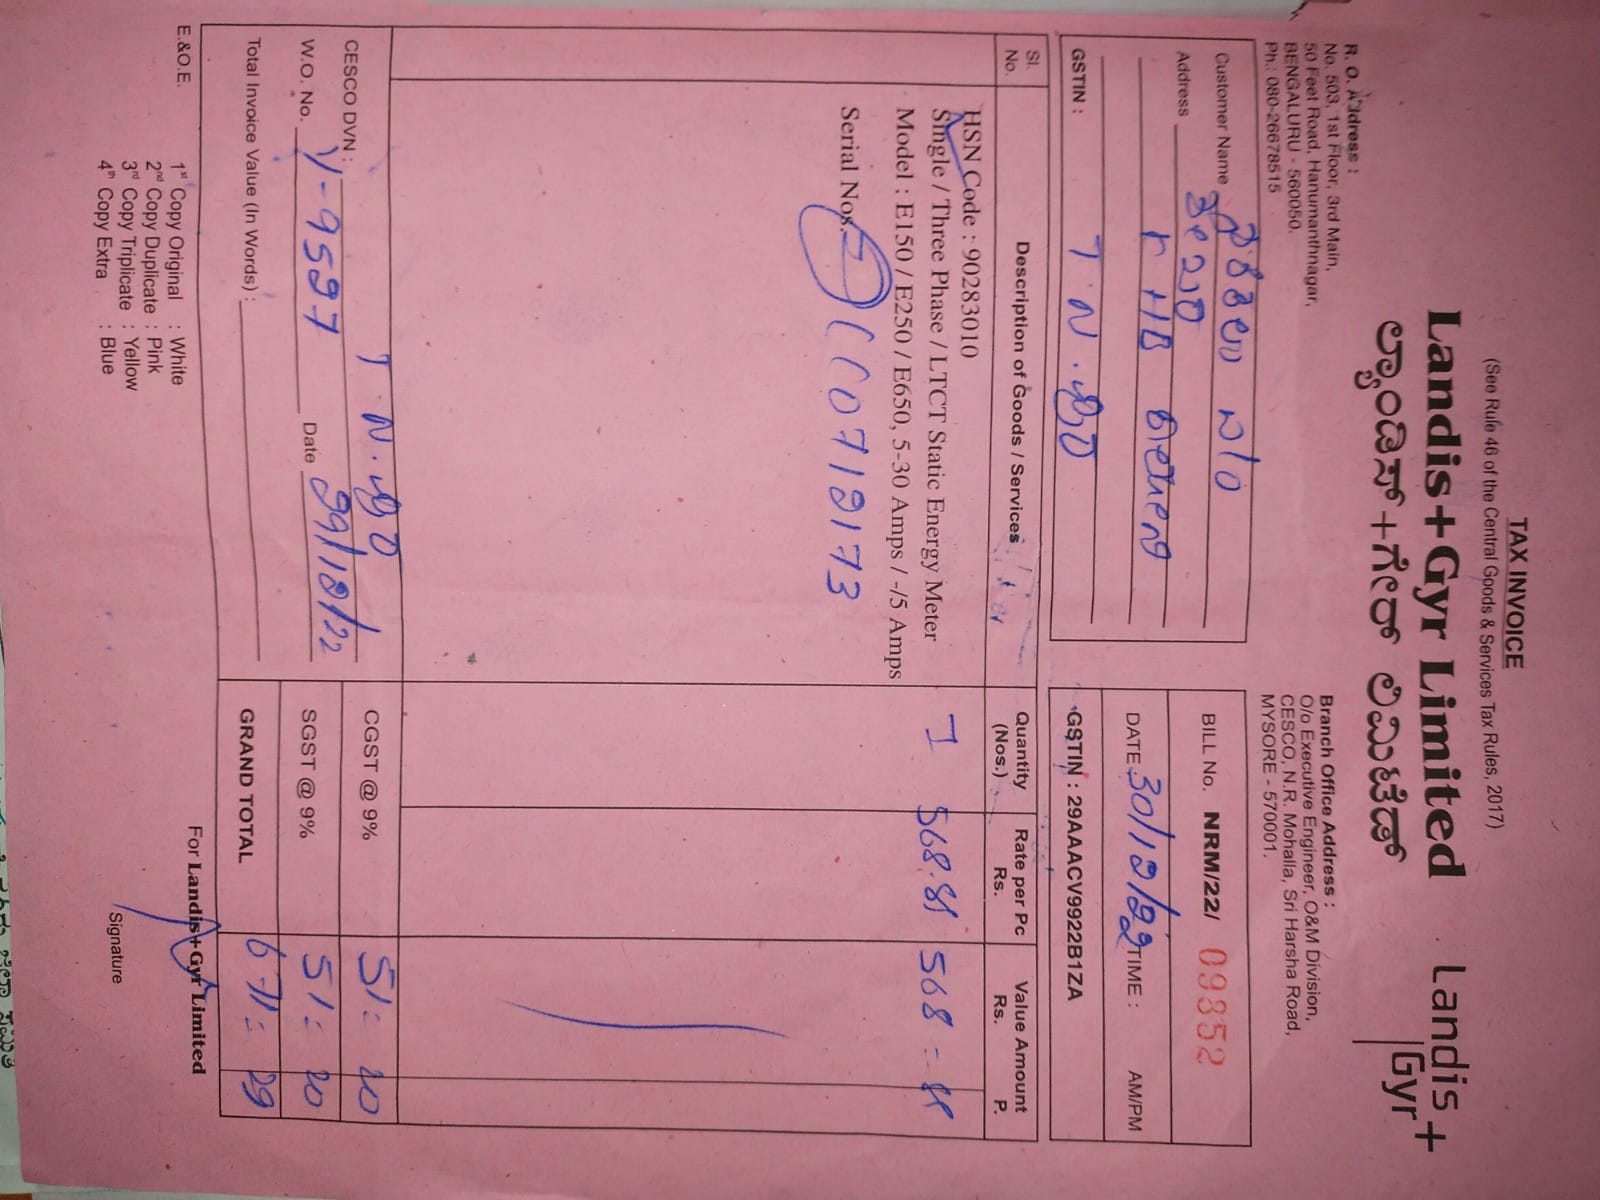 TAX INVOICE
(See Rule 46 of the Central Goods & Services Tax Rules, 2017)
Landis+Gyr Limited
ಲ್ಯಾಂಡಿಸ್+ಗೇರ್ ಲಿಮಿಟೆಡ್
Landis+
Gyr
R. O. Address :
No. 503, 1st Floor, 3rd Main,
50 Feet Road, Hanumanthnagar,
BENGALURU - 560050.
Ph.: 080-26678515
Branch Office Address :
O/o Executive Engineer, O&M Division,
CESCO, N.R. Mohalla, Sri Harsha Road,
MYSORE - 570001.
Customer Name
Address
T.N.ಪುರ
GSTIN :
BILL No. NRM/22/ 09352
DATE 30/12/22 TIME : AM/PM
GSTIN : 29AAACV9922B1ZA
Sl. No. Description of Goods / Services Quantity (Nos.) Rate per Pc Rs. Value Amount Rs. P.
HSN Code : 90283010
Single / Three Phase / LTCT Static Energy Meter 1 568.88 568=88
Model : E150 / E250 / E650, 5-30 Amps / -/5 Amps
Serial Nos.
T.N.ಪುರ
CESCO DVN :
W.O. No. Date 29/12/22
Total Invoice Value (In Words) :
CGST @ 9% 51=20
SGST @ 9% 51=20
GRAND TOTAL 671=29
E.&O.E.
1st Copy Original : White
2nd Copy Duplicate : Pink
3rd Copy Triplicate : Yellow
4th Copy Extra : Blue
For Landis+Gyr Limited
Signature